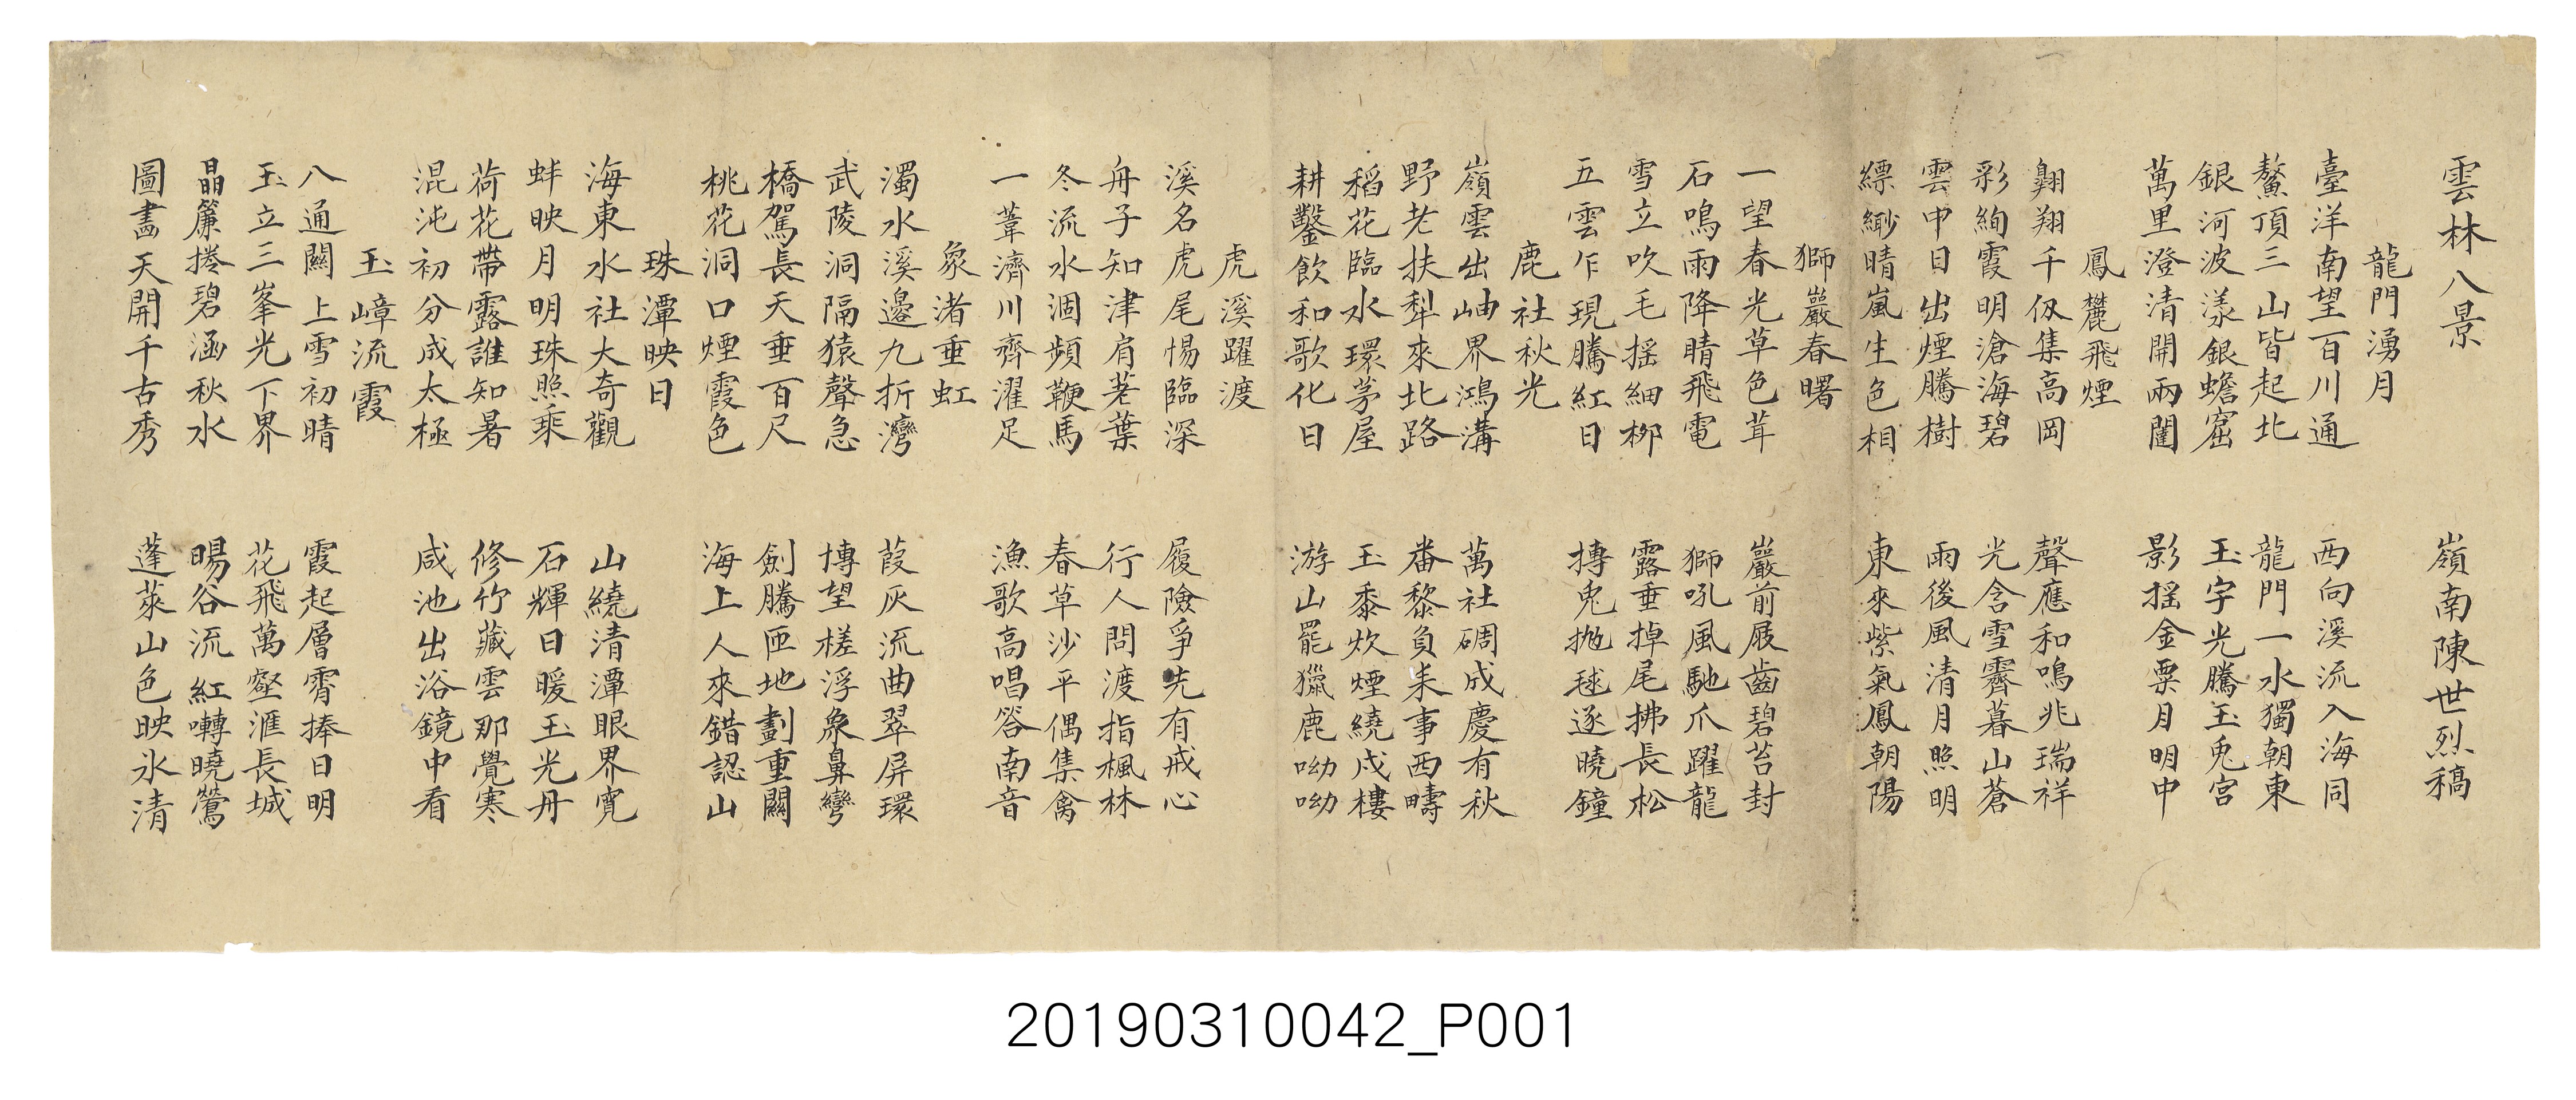 雲林八景　嶺南陳世烈稿
龍門湧月
臺洋南望百川通　西向溪流入海同
鰲頂三山皆起北　龍門一水獨朝東
銀河波漾銀蟾窟　玉宇光騰玉兔宮
萬里澄清開兩闈　影搖金粟月明中
鳳麓飛煙
翺翔千仭集高岡　聲應和鳴兆瑞祥
彩絢霞明滄海碧　光含雪霽暮山蒼
雲中日出煙騰樹　雨後風清月照明
縹緲晴嵐生色相　東來紫氣鳳朝陽
獅巖春曙
一望春光草色茸　巖前屐齒碧苔封
石鳴雨降睛飛電　獅吼風馳爪躍龍
雪立吹毛搖細柳　露垂掉尾拂長松
五雲乍現騰紅日　摶兎拋毬逐曉鐘
鹿社秋光
嶺雲出岫界鴻溝　萬社碉成慶有秋
野老扶犁來北路　番黎負耒事西疇
稻花臨水環茅屋　玉黍炊煙繞戍樓
耕鑿飲和歌化日　游山罷獵鹿呦呦
虎溪躍渡
溪名虎尾惕臨深　履險爭先有戒心
舟子知津肩荖葉　行人問渡指楓林
冬流水涸頻鞭馬　春草沙平偶集禽
一葦濟川齊濯足　漁歌高唱答南音
象渚垂虹
濁水溪邊九折灣　葭灰流曲翠屏環
武陵洞隔猿聲急　博望槎浮象鼻彎
橋駕長天垂百尺　劍騰匝地劃重關
桃花洞口煙霞色　海上人來錯認山
珠潭映日
海東水社大奇觀　山繞清潭眼界寬
蚌映月明珠照乘　石輝日暖玉光丹
荷花帶露誰知暑　修竹藏雲那覺寒
混沌初分成太極　咸池出浴鏡中看
玉嶂流霞
八通關上雪初晴　霞起層霄捧日明
玉立三峯光下界　花飛萬壑滙長城
晶簾捲碧涵秋水　暘谷流紅囀曉鶯
圖畵天開千古秀　蓬萊山色映氷清
20190310042_P001